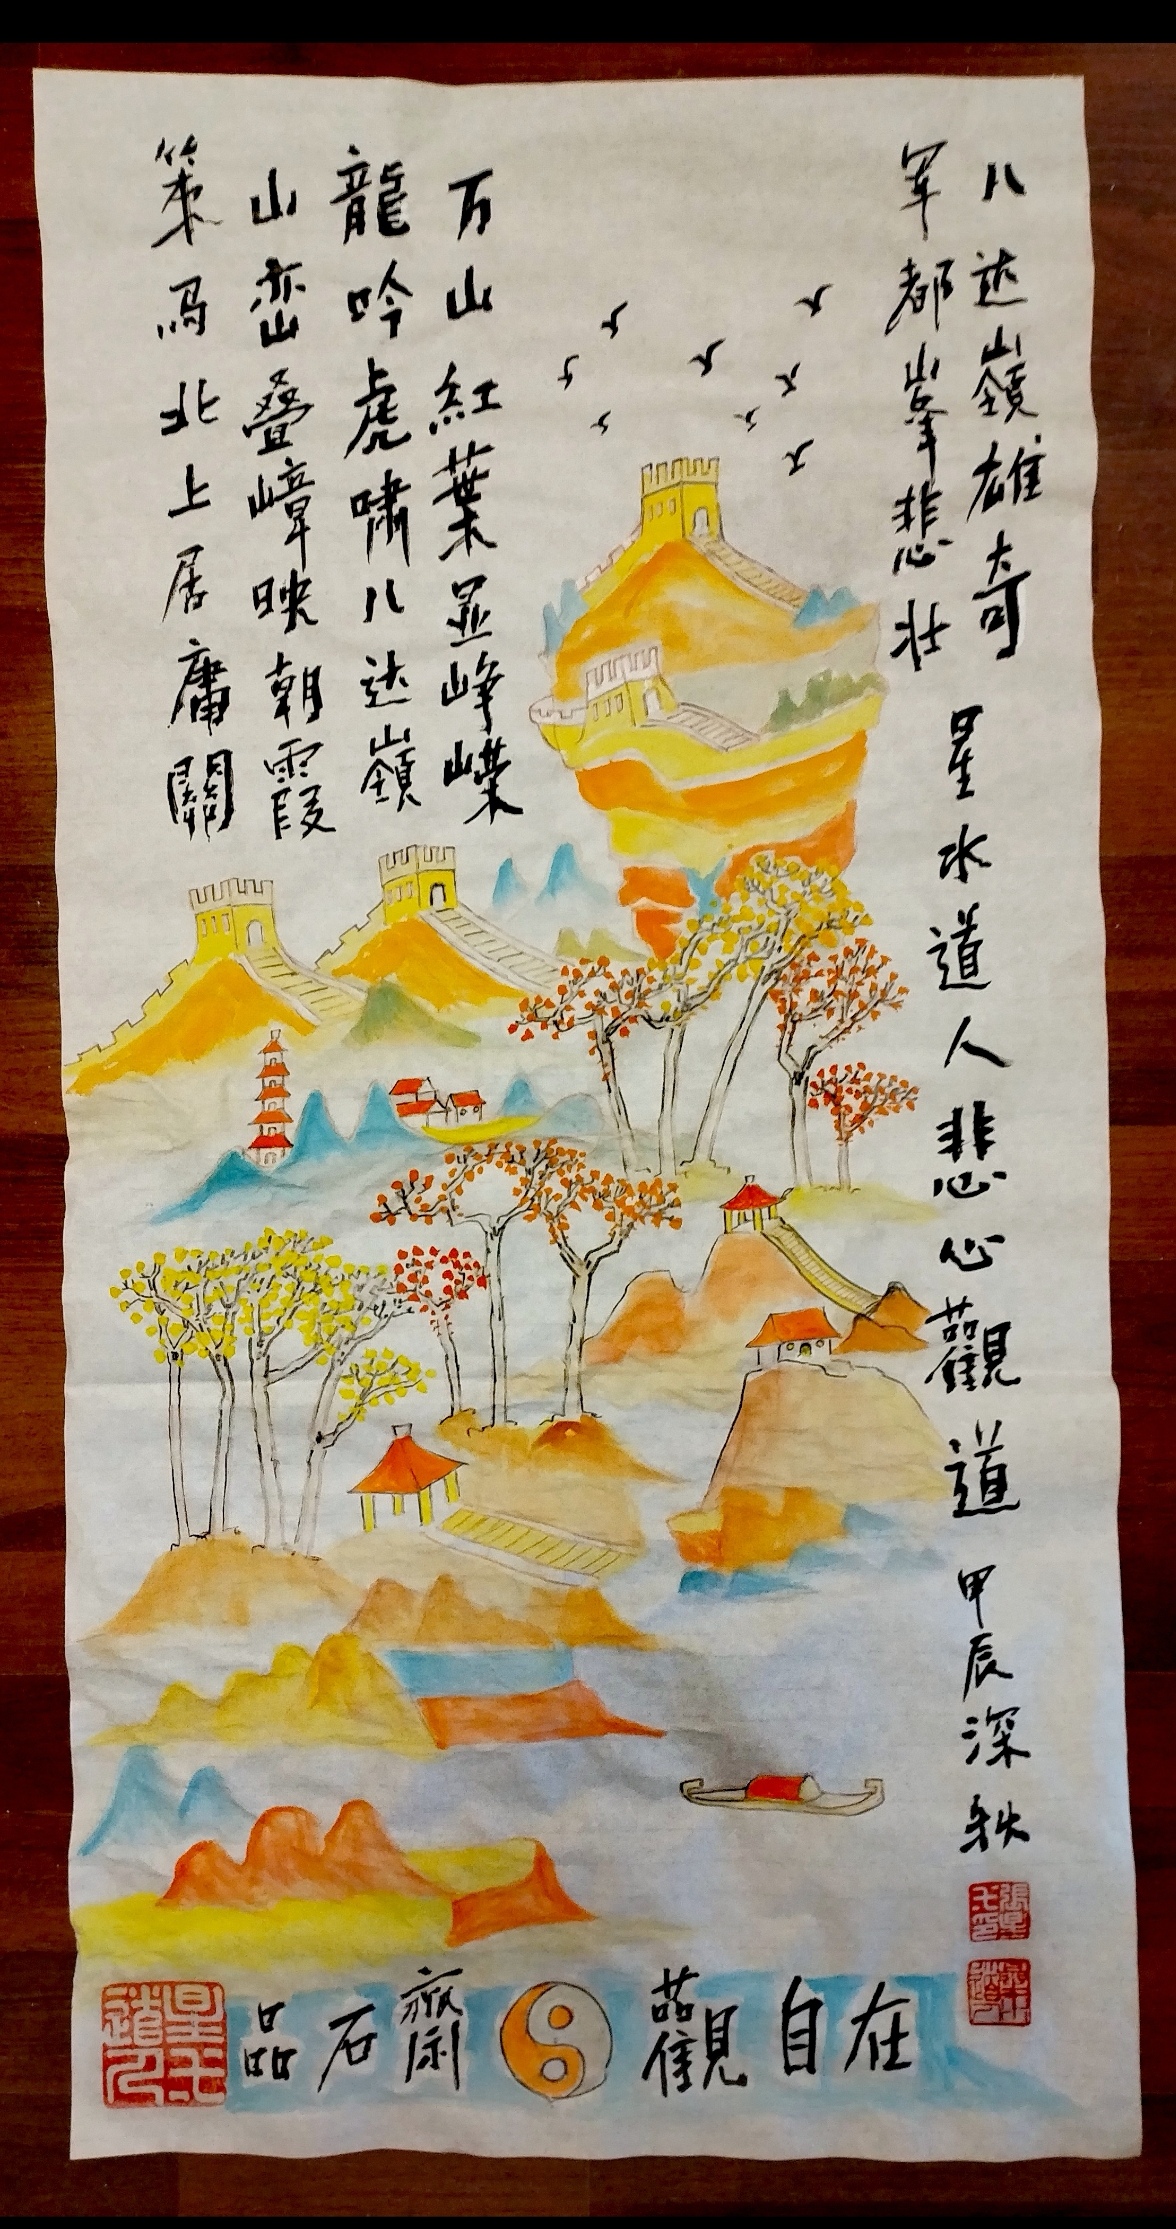 八达嶺雄奇
军都峯悲壮
星水道人悲心觀道 甲辰深秋
万山紅葉显峥嶸
龍吟虎嘯八达嶺
山峦叠嶂映朝霞
策马北上居庸關
品石齋 觀自在